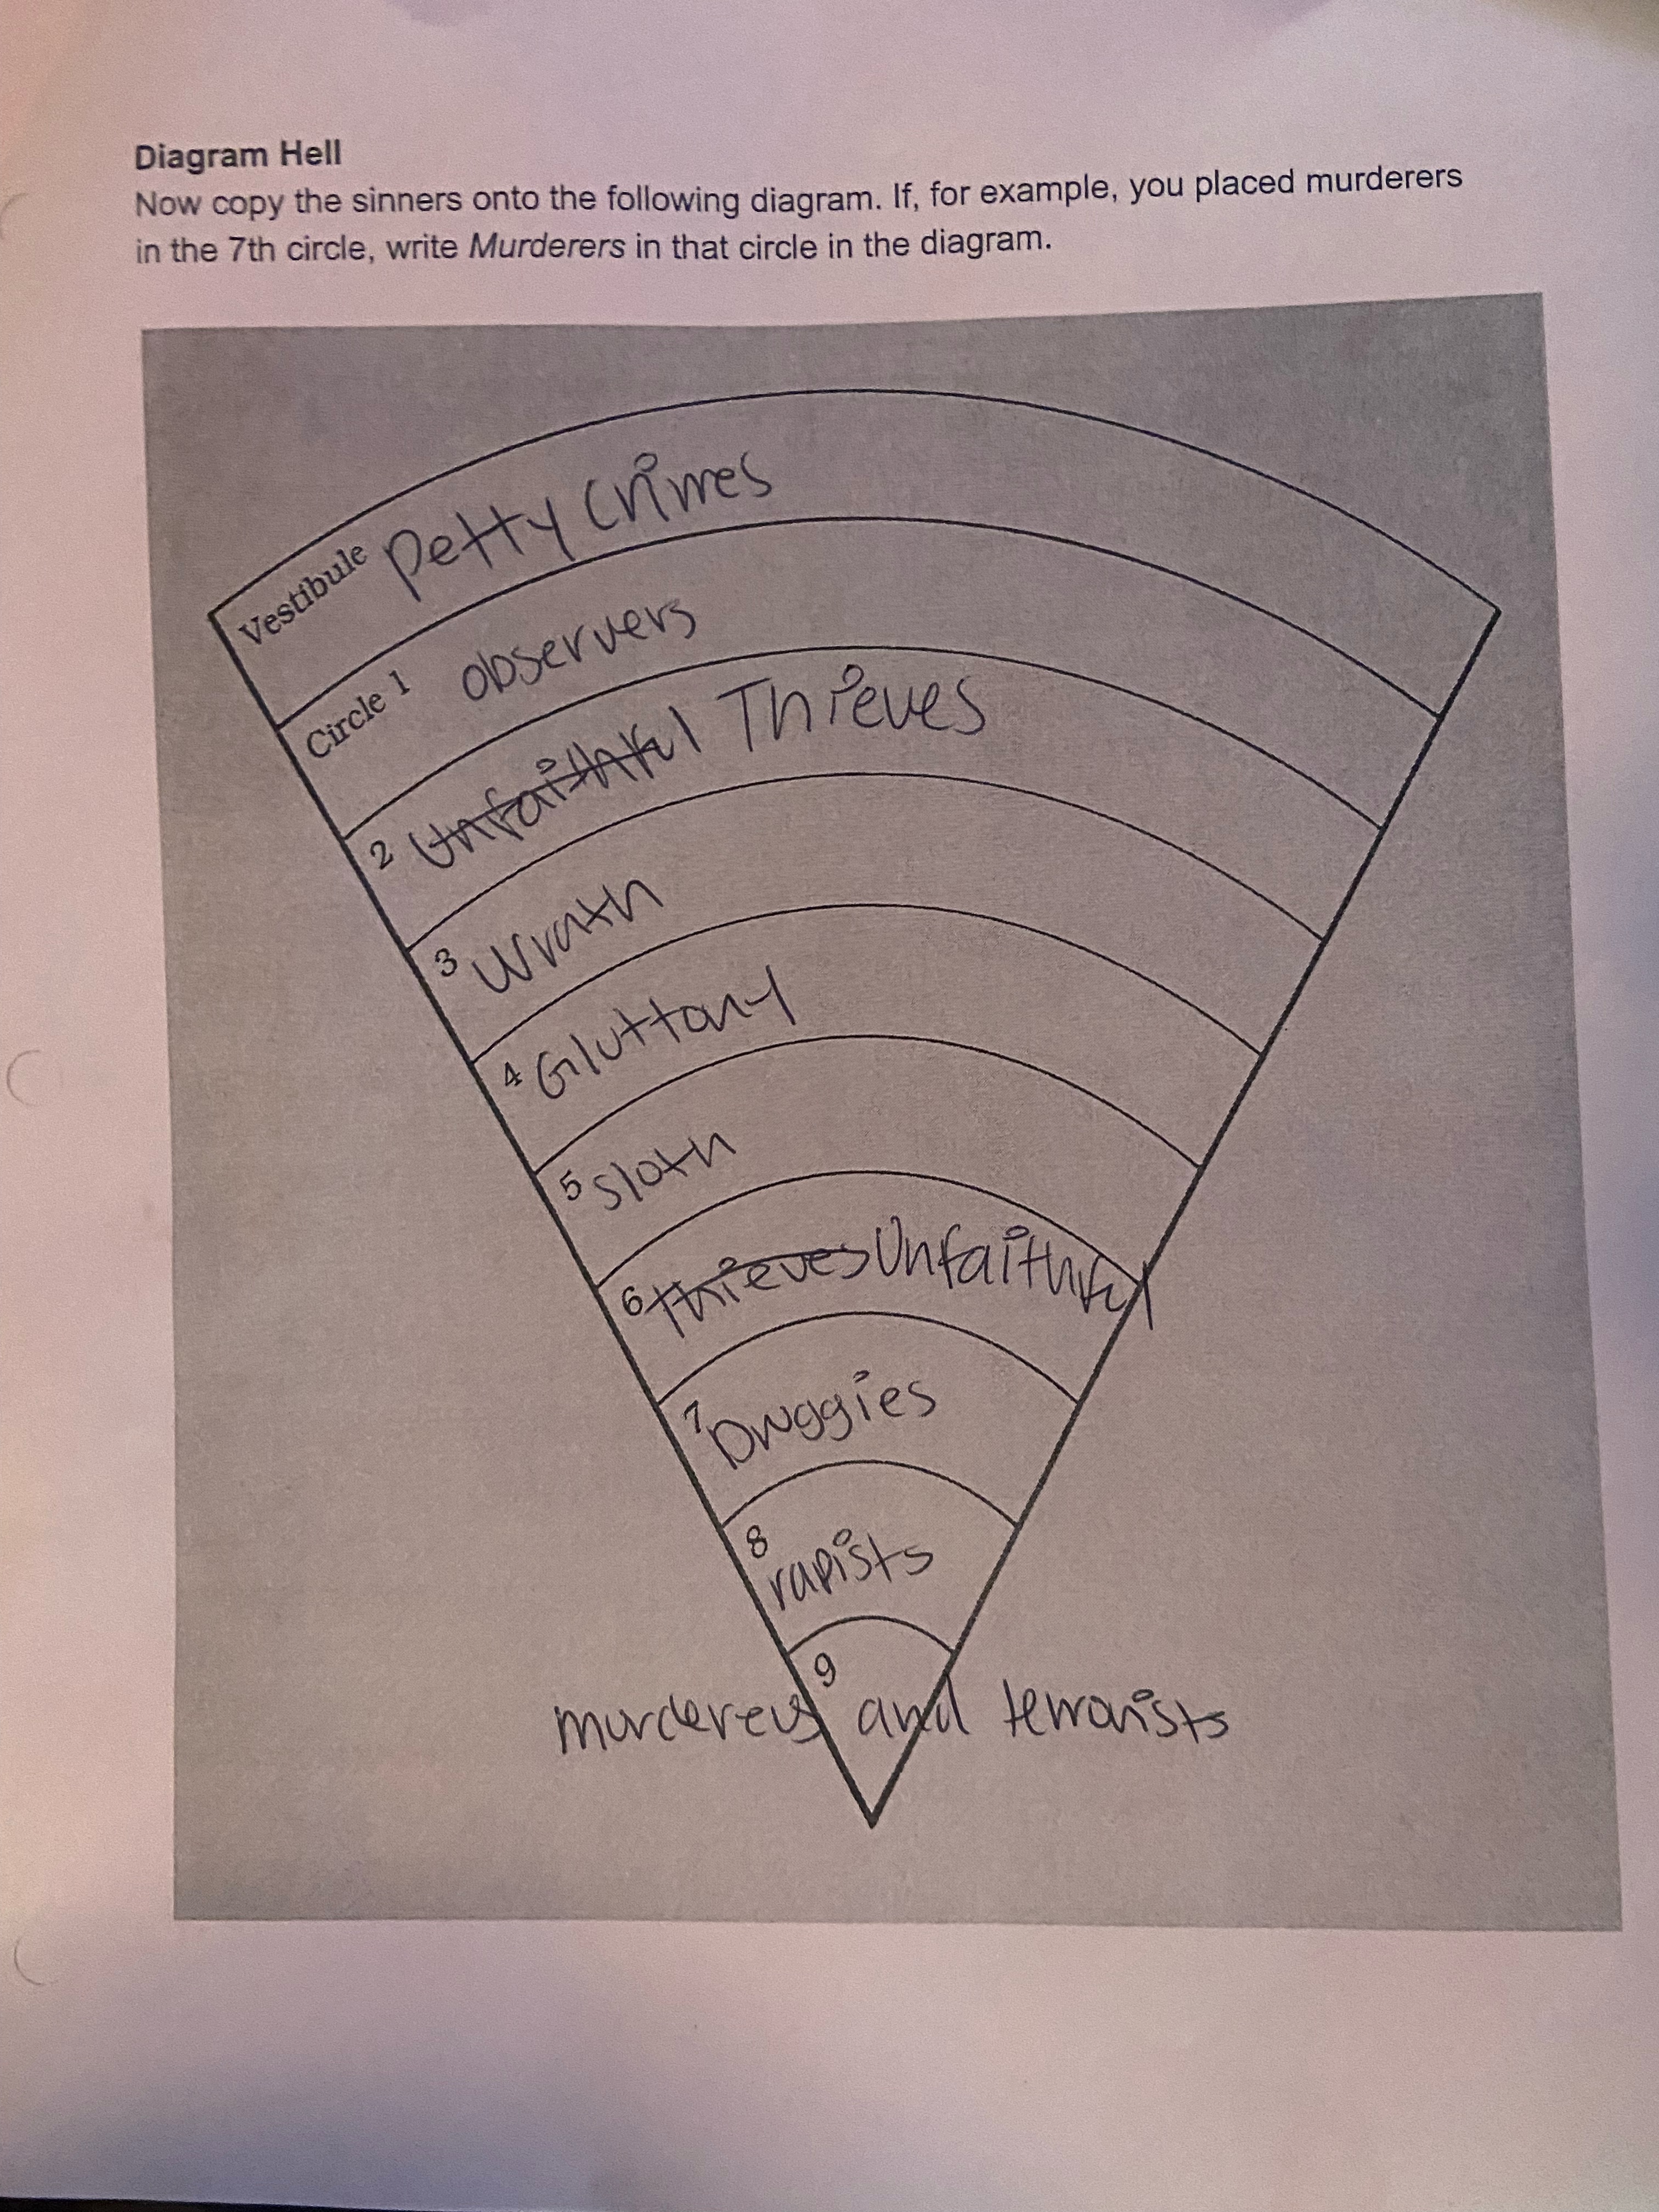 Diagram Hell
Now copy the sinners onto the following diagram. If, for example, you placed murderers
in the 7th circle, write Murderers in that circle in the diagram.
Vestibule Petty Crimes
Circle 1 observers
2 Unfaithful Thieves
3 Wrath
4 Gluttony
5 Sloth
6 Thieves Unfaithful
7 Druggies
8
rapists
9
murderers and terrorists